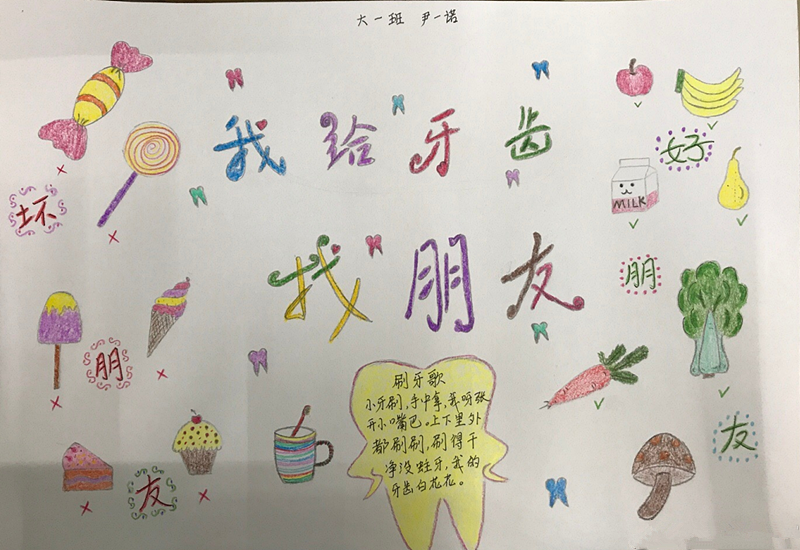 大一班 尹一诺
我给牙齿
找朋友
坏
朋
友
好
朋
友
MILK
刷牙歌
小牙刷,手中拿,我呀张
开小嘴巴。上下里外
都刷刷,刷得干
净没蛀牙,我的
牙齿白花花。